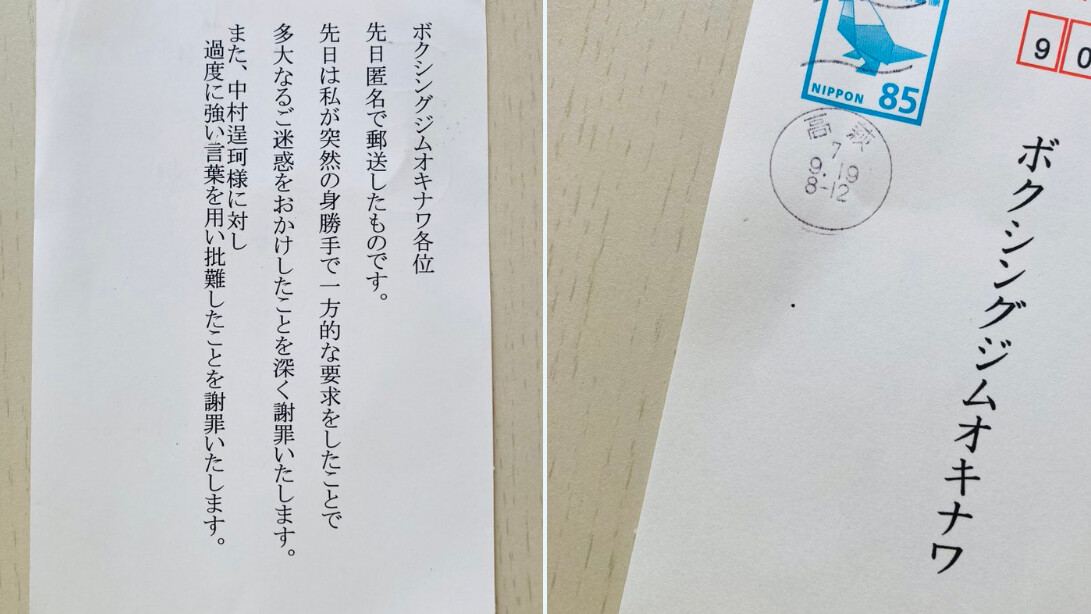 ボクシングジムオキナワ各位
先日匿名で郵送したものです。
先日は私が突然の身勝手で一方的な要求をしたことで
多大なるご迷惑をおかけしたことを深く謝罪いたします。
また、中村逞珂様に対し
過度に強い言葉を用い批難したことを謝罪いたします。
90
NIPPON 85
高萩
7
9.19
8-12
ボクシングジムオキナワ